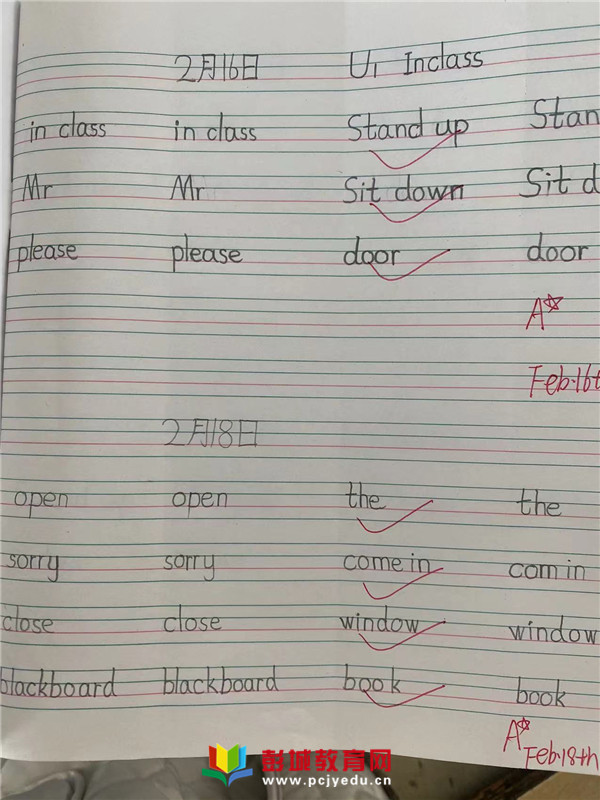 2月16日 U1 Inclass
in class in class Stand up Stan
Mr Mr Sit down Sit d
please please door door
A☆
Feb.16t
2月18日
open open the the
sorry sorry come in com in
close close window window
blackboard blackboard book book
A☆
Feb.18th
彭城教育网
www.pcjyedu.cn